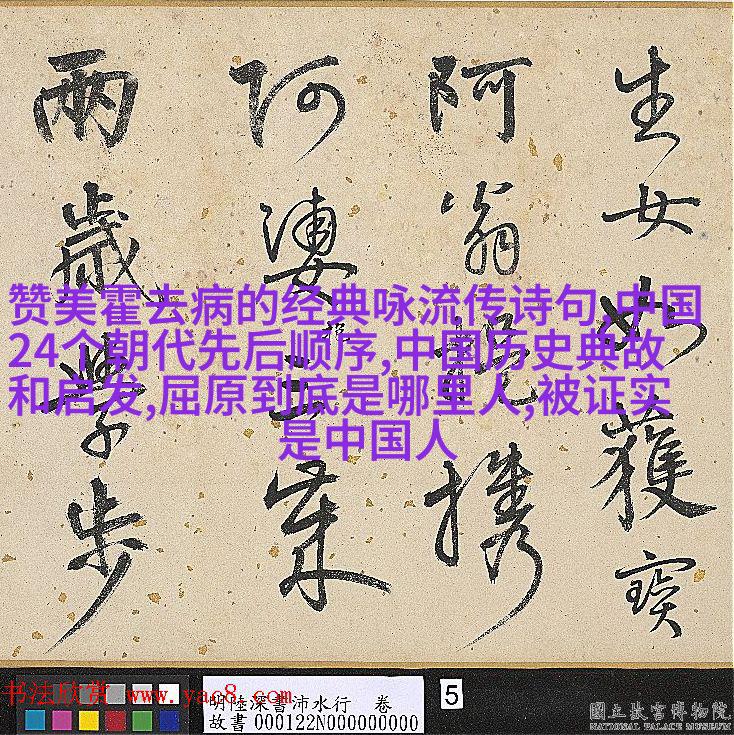 生女如獲寶
阿翁携
阿婆
兩歲學步
赞美霍去病的经典咏流传诗句,中国
24个朝代先后顺序,中国历史典故
和启发,屈原到底是哪里人,被证实
是中国人
书法欣赏 www.yac8.com
明陸深書沛水行 卷
故書 000122N000000000
5
國立故宮博物院
NATIONAL PALACE MUSEUM